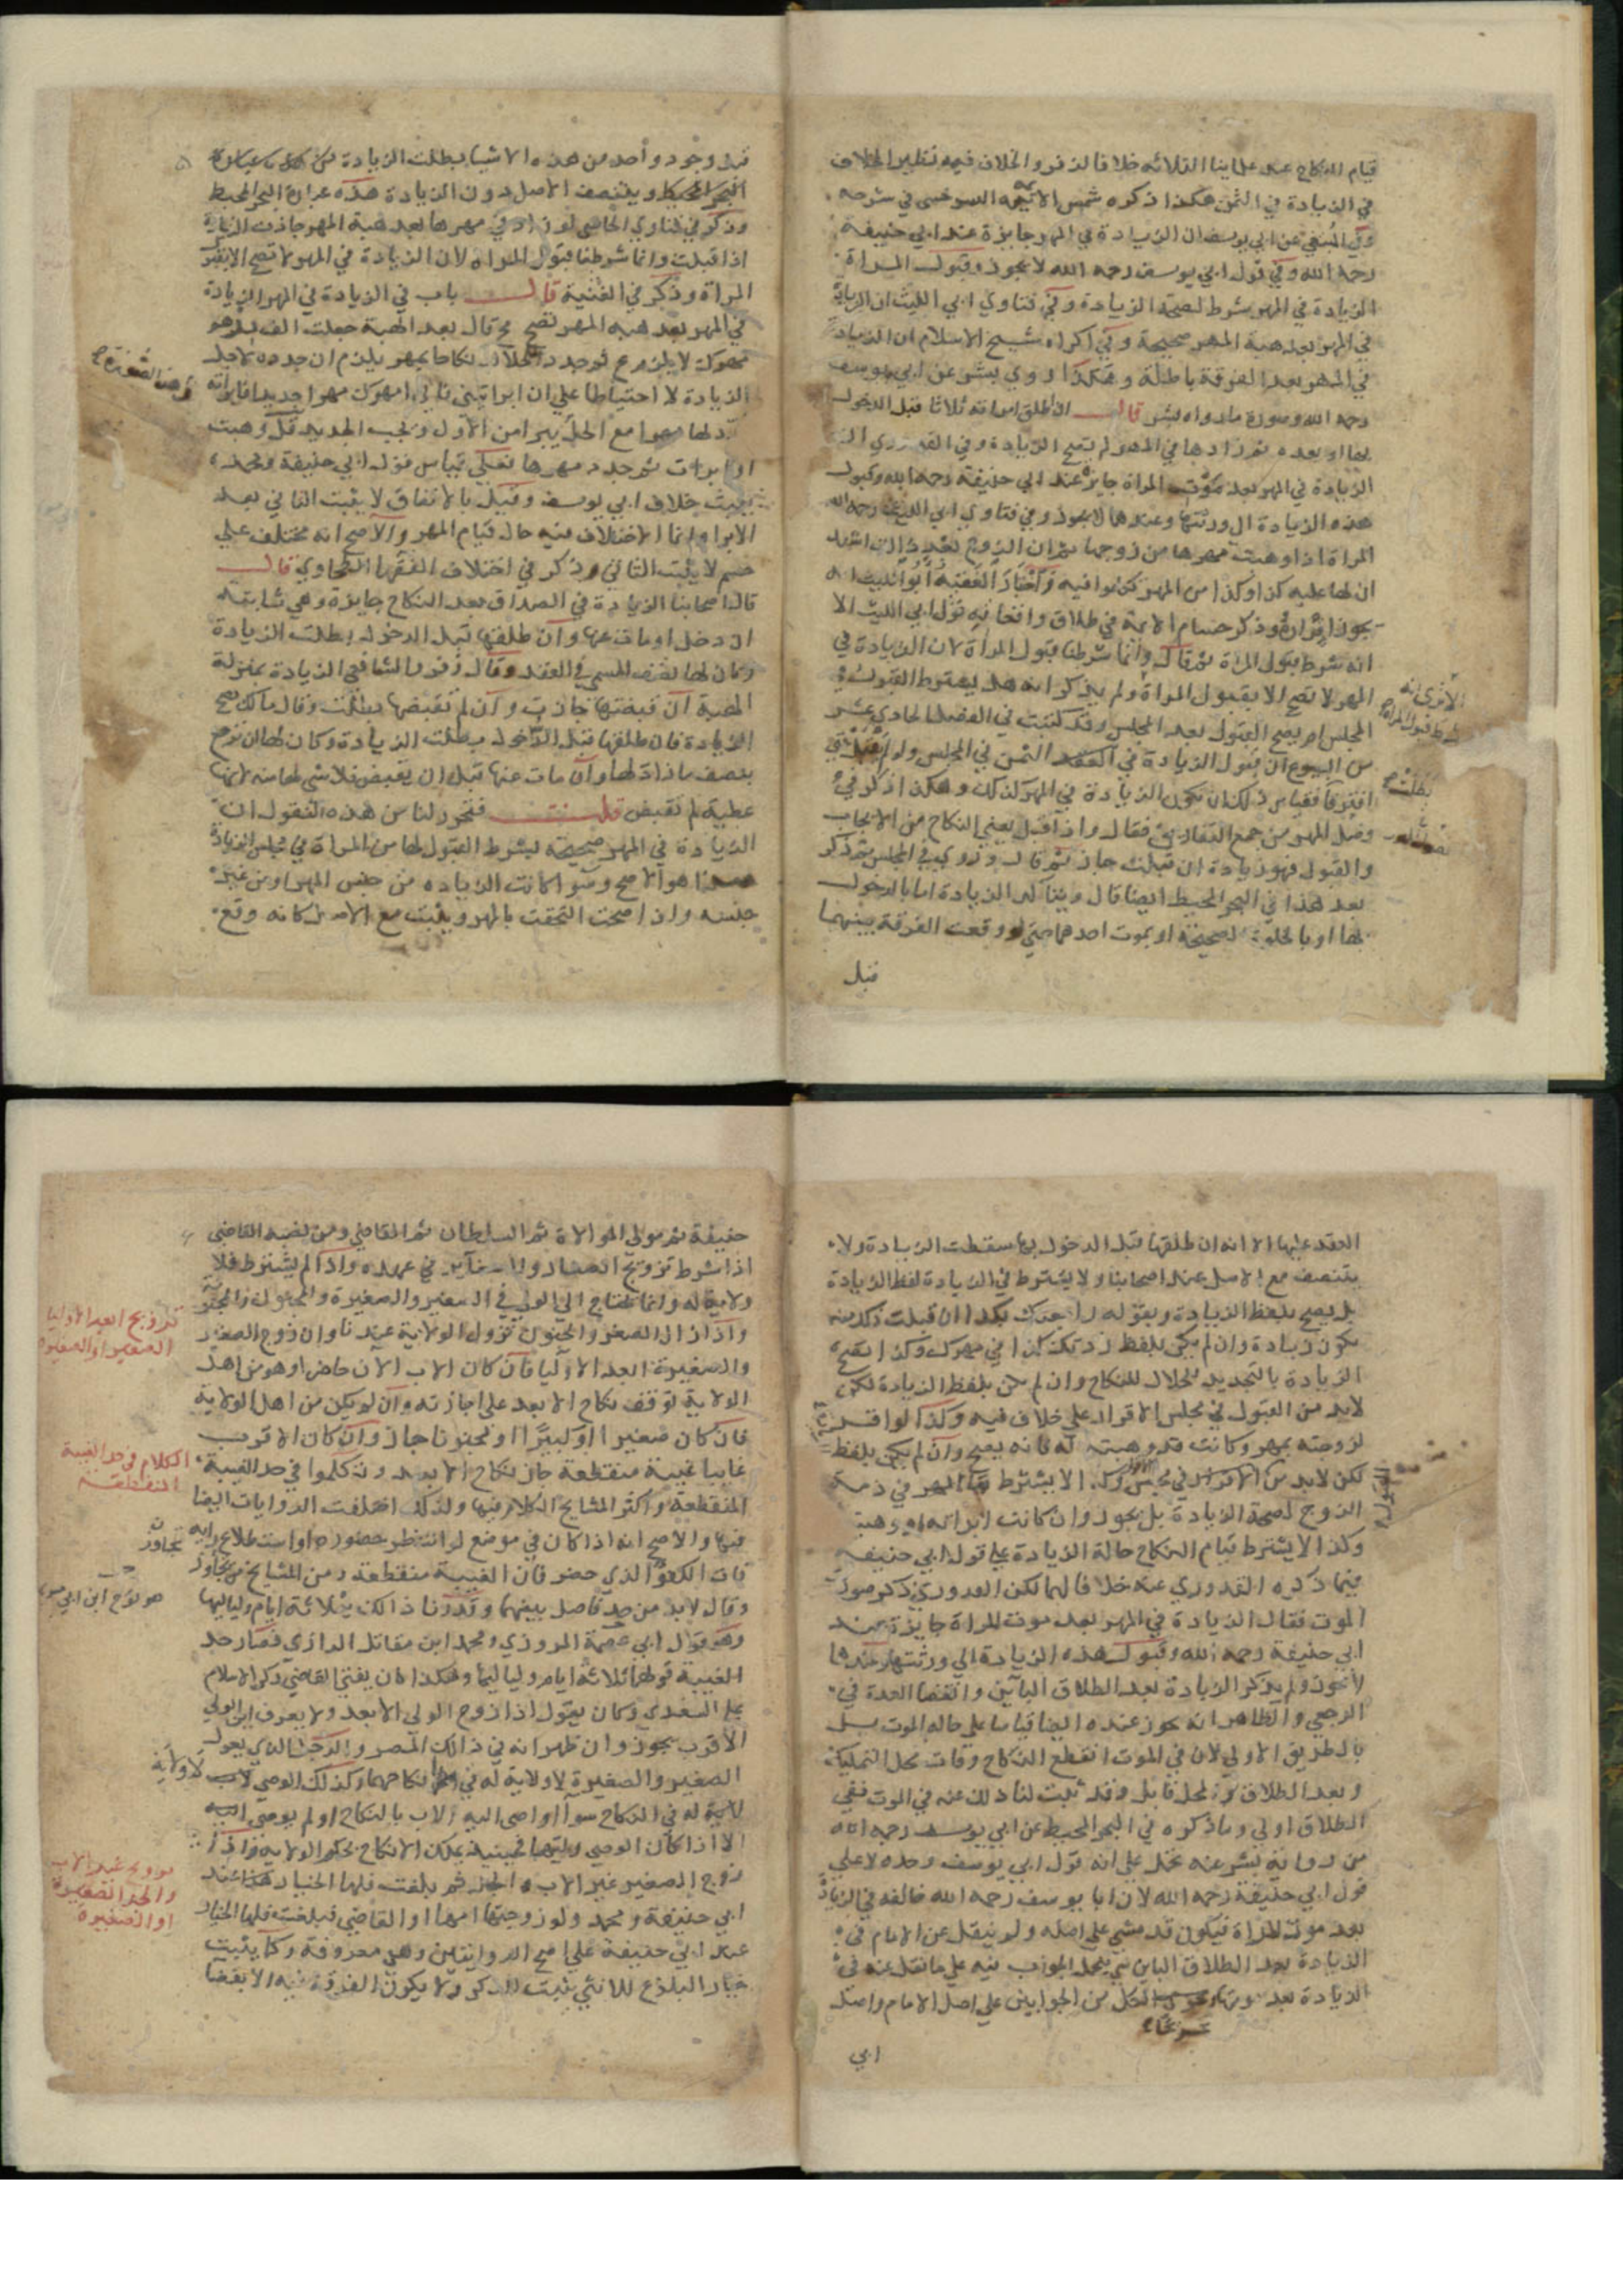 قيام النكاح عند علماينا الثلاثه خلافا لزفر والخلاف فيه نظير الخلاف
في الزيادة في الثمن هكذا ذكره شمس الايمه السرخسي في شرحه
وفي المنتقى عن ابي يوسف ان الزيادة في المهر جايزة عند ابي حنيفة
رحمه الله وفي قول ابي يوسف رحمه الله لا يجوز وقبول المراة
الزيادة في المهر شرط لصحة الزيادة وفي فتاوي ابي الليث ان الزيادة
في المهر بعد هبة المهر صحيحة وفي اكراه شيخ الاسلام ان الزيادة
في المهر بعد الفرقة باطلة وهكذا روي بشر عن ابي يوسف
رحمه الله وصورة ما رواه بشر قال اذا طلق امراته ثلاثا قبل الدخول
بها او بعده ثم زادها في المهر لم تصح الزيادة وفي القدوري ان
الزيادة في المهر بعد موت المراة جايز عند ابي حنيفة رحمه الله وقبول
هذه الزيادة الي ورثتها وعندهما لا يجوز وفي فتاوي ابي الليث رحمه الله
المراة اذا وهبت مهرها من زوجها ثم ان الزوج بعد ذلك اشهد
ان لها عليه كذا وكذا من المهر تكلموا فيه واختار الفقيه ابو الليث انه
يجوز اقراره وذكر حسام الايمة في طلاق واقعاته قول ابي الليث الا
انه شرط قبول المراة ثم قال وانما شرطنا قبول المراة لان الزيادة في
المهر لا تصح الا بقبول المراة ولم يذكر انه هل يشترط القبول في
المجلس ام يصح القبول بعد المجلس وقد كتبت في الفصل الحادي عشر
من البيوع ان قبول الزيادة في الثمن في المجلس ولم يقبل حتي
افترقا فقياس ذلك ان تكون الزيادة في المهر كذلك وهكذا ذكر في
فصل المهر من جمع التفاريق فقال واذا قبل يعني النكاح من الايجاب
والقبول فهو زيادة ان قبلت جاز ثم قال وروي في المجلس ثم ذكر
بعد هذا في البحر المحيط ايضا قال ويتاكد الزيادة اما بالدخول
بها او بالخلوة الصحيحة او بموت احدهما حتي لو وقعت الفرقة بينهما
قبل
الا تري انه
شرط قبول المراة
بطلت
قبل وجود واحد من هذه الاشيا بطلت الزيادة
البحر المحيط ويتنصف الاصل دون الزيادة هذه عبارة البحر المحيط
وذكر في فتاوي القاضي لو زاد في مهرها بعد هبة المهر جازت الزيادة
اذا قبلت وانما شرطنا قبول المراة لان الزيادة في المهر لا تصح الا بقبول
المراة وذكر في القنية قال باب في الزيادة في المهر والزيادة
في المهر بعد هبة المهر تصح ثم قال بعد الهبة جعلت الف درهم
مهرك لا يلزم ولو جدد للحلال نكاحا بمهر يلزم ان جدده لاجل
الزيادة لا احتياطا
لها مهرا مع الحل يبرا من الاول ويجب الجديد وهبت
او ابرات ثم جدد مهرها فعلي قياس قول ابي حنيفة ومحمد
يثبت خلاف ابي يوسف وقيل بالاتفاق لا يثبت الثاني بعد
الابرا وانما الاختلاف فيه حال قيام المهر والاصح انه مختلف علي
لا يثبت الثاني وذكر في اختلاف الفقها الطحاوي قال
قال اصحابنا الزيادة في الصداق بعد النكاح جايزة وهي ثابتة
ان دخل او مات عنها وان طلقها قبل الدخول بطلت الزيادة
وكان لها نصف المسمي في العقد وقال زفر والشافعي الزيادة بمنزلة
الهبة ان قبضتها جازت وان لم تقبضها بطلت وقال مالك تصح
الزيادة فان طلقها قبل الدخول بطلت الزيادة وكان لها ان ترجع
بنصف ما زاد لها وان مات عنها قبل ان يقبض فلا شي لها منه لانها
عطية لم تقبض قلت فتحرر لنا من هذه النقول ان
الزيادة في المهر صحيحة بشرط القبول لها من المراة في مجلس الزيادة
هذا هو الاصح وسوا كانت الزيادة من جنس المهر او من غير
جنسه واذا صحت التحقت بالمهر ويثبت مع الاصل كانه وقع
العقد عليها الا انه ان طلقها قبل الدخول بها سقطت الزيادة ولا
يتنصف مع الاصل عند اصحابنا ولا يشترط في الزيادة لفظ الزيادة
بل يصح بلفظ الزيادة وبقوله راجعتك بكذا ان قبلت ذلك منه
تكون زيادة وان لم يكن بلفظ زدتك كذا في مهرك وكذا تصح
الزيادة بالتجديد للحلال للنكاح وان لم يكن بلفظ الزيادة لكن
لابد من القبول في مجلس الاقرار علي خلاف فيه وكذا لو اقر
لزوجته بمهر وكانت قد وهبته له فانه يصح وان لم يكن بلفظ
لكن لابد من في مجلس الاقرار ولا يشترط بقا المهر في ذمة
الزوج لصحة الزيادة بل يجوز وان كانت ابراته او وهبته
وكذا لا يشترط قيام النكاح حالة الزيادة علي قول ابي حنيفه
فيما ذكره القدوري عنه خلافا لهما لكن القدوري ذكر صورة
الموت فقال الزيادة في المهر بعد موت المراة جايزة عند
ابي حنيفة رحمه الله وقبول هذه الزيادة الي ورثتها وعندهما
لا يجوز ولم يذكر الزيادة بعد الطلاق الباين وانقضا العدة في
الرجعي والظاهر انه يجوز عنده ايضا قياسا علي حالة الموت بل
بالطريق الاولي لان في الموت انقطع النكاح وفات محل التمليك
وبعد الطلاق المحل قابل وقد ثبت لنا ذلك عنه في الموت ففي
الطلاق اولي وما ذكره في البحر المحيط عن ابي يوسف رحمه الله
من رواية بشر عنه يحمل علي انه قول ابي يوسف وحده لا علي
قول ابي حنيفة رحمه الله لان ابا يوسف رحمه الله خالفه في الزيادة
بعد موت المراة فيكون قد مشي علي اصله ولم ينقل عن الامام في
الزيادة بعد الطلاق الباين شي فيحمل الجواب فيه علي ما نقل عنه في
الزيادة بعد موتها الكل من الجوابين علي اصل الامام واصل
ابي
حنيفة ثم مولي الموالاة ثم السلطان ثم القاضي ومن نصبه القاضي
اذا شرط تزويج الصغار والصغاير في عهده واذا لم يشترط فلا
ولاية له وانما يحتاج الي الولي في الصغير والصغيرة والمجنون والمجنونة
واذا زال الصغر والجنون تزول الولاية عندنا وان زوج الصغير
والصغيرة ابعد الاوليا فان كان الاب الان حاضرا وهو من اهل
الولاية توقف نكاح الابعد علي اجازته وان لم يكن من اهل الولاية
فان كان صغيرا او كبيرا او مجنونا جاز وان كان الاقرب
غايبا غيبة منقطعة جاز نكاح الابعد وتكلموا في حد الغيبة
المنقطعة واكثر المشايخ الكلام فيها ولذلك اختلفت الروايات ايضا
فيها والاصح انه اذا كان في موضع لو انتظر حضوره او استطلاع رايه
فات الكفو الذي حضر فان الغيبة منقطعة ومن المشايخ من تجاوز
وقال لابد من حد فاصل بينهما وقدرنا ذلك بثلاثة ايام ولياليها
وهو قول ابي عصمة المروزي ومحمد ابن مقاتل الرازي فصار حد
الغيبة قولهما ثلاثة ايام ولياليها وهكذا كان يفتي القاضي ركن الاسلام
علي السغدي وكان يقول اذا زوج الولي الابعد ولا يعرف اين الولي
الاقرب يجوز وان ظهر انه في ذلك المصر والرجل الذي يعول
الصغير والصغيرة لا ولاية له في نكاحهما وكذلك الوصي لا ولاية
له في النكاح سوا اوصي اليه الاب بالنكاح او لم يوصي اليه
الا اذا كان الوصي وليهما فحينيذ يملك الانكاح بحكم الولاية واذا
زوج الصغير غير الاب والجد ثم بلغت فلها الخيار هذا عند
ابي حنيفة ومحمد ولو زوجتها امها او القاضي فبلغت فلها الخيار
عند ابي حنيفة علي اصح الروايتين وهي معروفة وكما يثبت
خيار البلوغ للانثي يثبت للذكر ولا يكون الفرقة فيه الا بقضا
تزويج ابعد الاوليا
الصغير او الصغيرة
الكلام في حد الغيبة
المنقطعة
تجاوز
لا ولاية
تزويج غير الاب
والجد الصغيرة
او الصغيرة